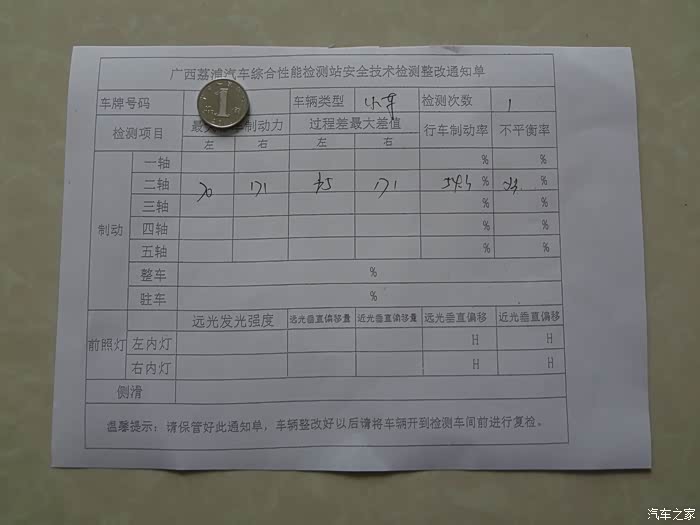 广西荔浦汽车综合性能检测站安全技术检测整改通知单
车牌号码 车辆类型 小车 检测次数 1
检测项目 最大 制动力 过程差最大差值 行车制动率 不平衡率
左 右 左 右
制动
一轴 % %
二轴 70 171 171 % %
三轴 % %
四轴 % %
五轴 % %
整车 %
驻车 %
前照灯
远光发光强度 远光垂直偏移量 近光垂直偏移量 远光垂直偏移 近光垂直偏移
左内灯 H H
右内灯 H H
侧滑
温馨提示：请保管好此通知单，车辆整改好以后请将车辆开到检测车间前进行复检。
1
汽车之家